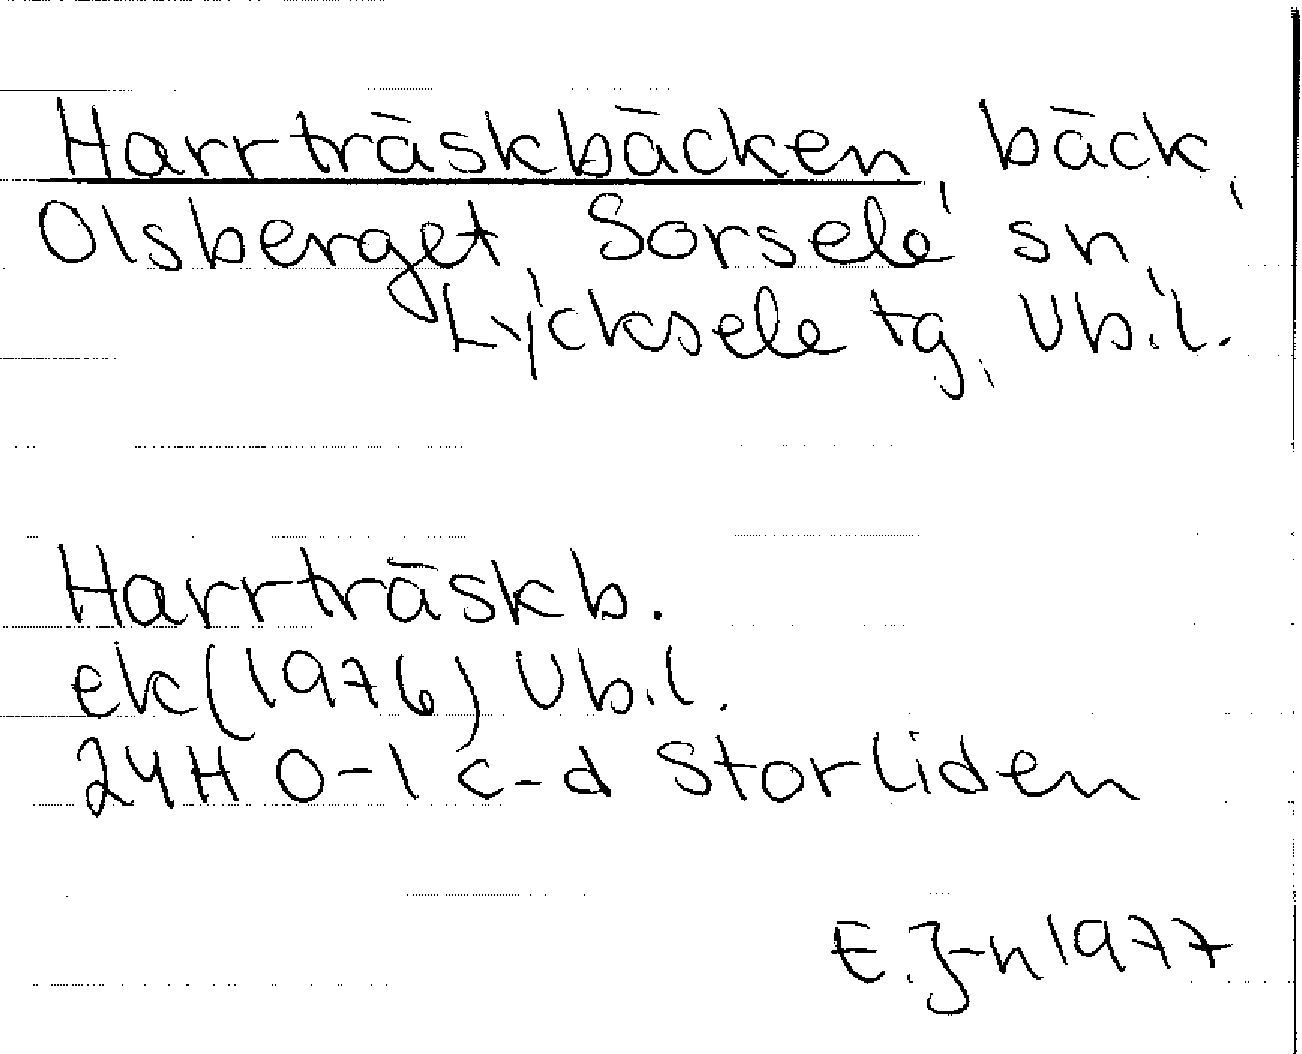 Harrträskbäcken, bäck,
Olsberget, Sorsele sn,
Lycksele tg, Vb.l.
Harrträskb.
ek(1976) Vb.l.
24H 0-1 c-d Storliden
E.J-n 1977